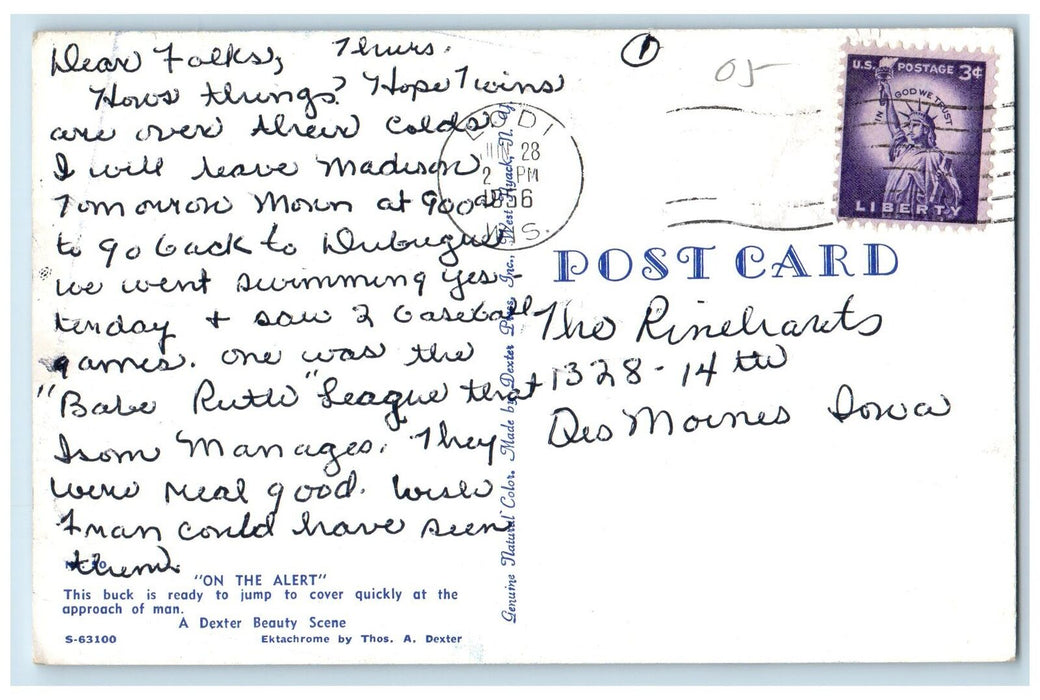 Dear Folks, Thurs.
Hows things? Hope Twins
are over their colds
I will leave Madison
Tomorrow Morn at 9:00
to go back to Dubuque
we went swimming yes-
terday + saw 2 baseball
games. One was the
"Babe Ruth" League that
Manages. They
were real good. Wish
Fran could have seen
them.
"ON THE ALERT"
This buck is ready to jump to cover quickly at the
approach of man.
A Dexter Beauty Scene
S-63100 Ektachrome by Thos. A. Dexter
Genuine Natural Color. Made by Dexter Press, Inc., West Nyack, N. Y.
1
05
LODI
28
2 PM
1956
WIS.
U.S. POSTAGE 3¢
IN GOD WE TRUST
LIBERTY
POST CARD
The Rineharts
1328-14th
Des Moines Iowa